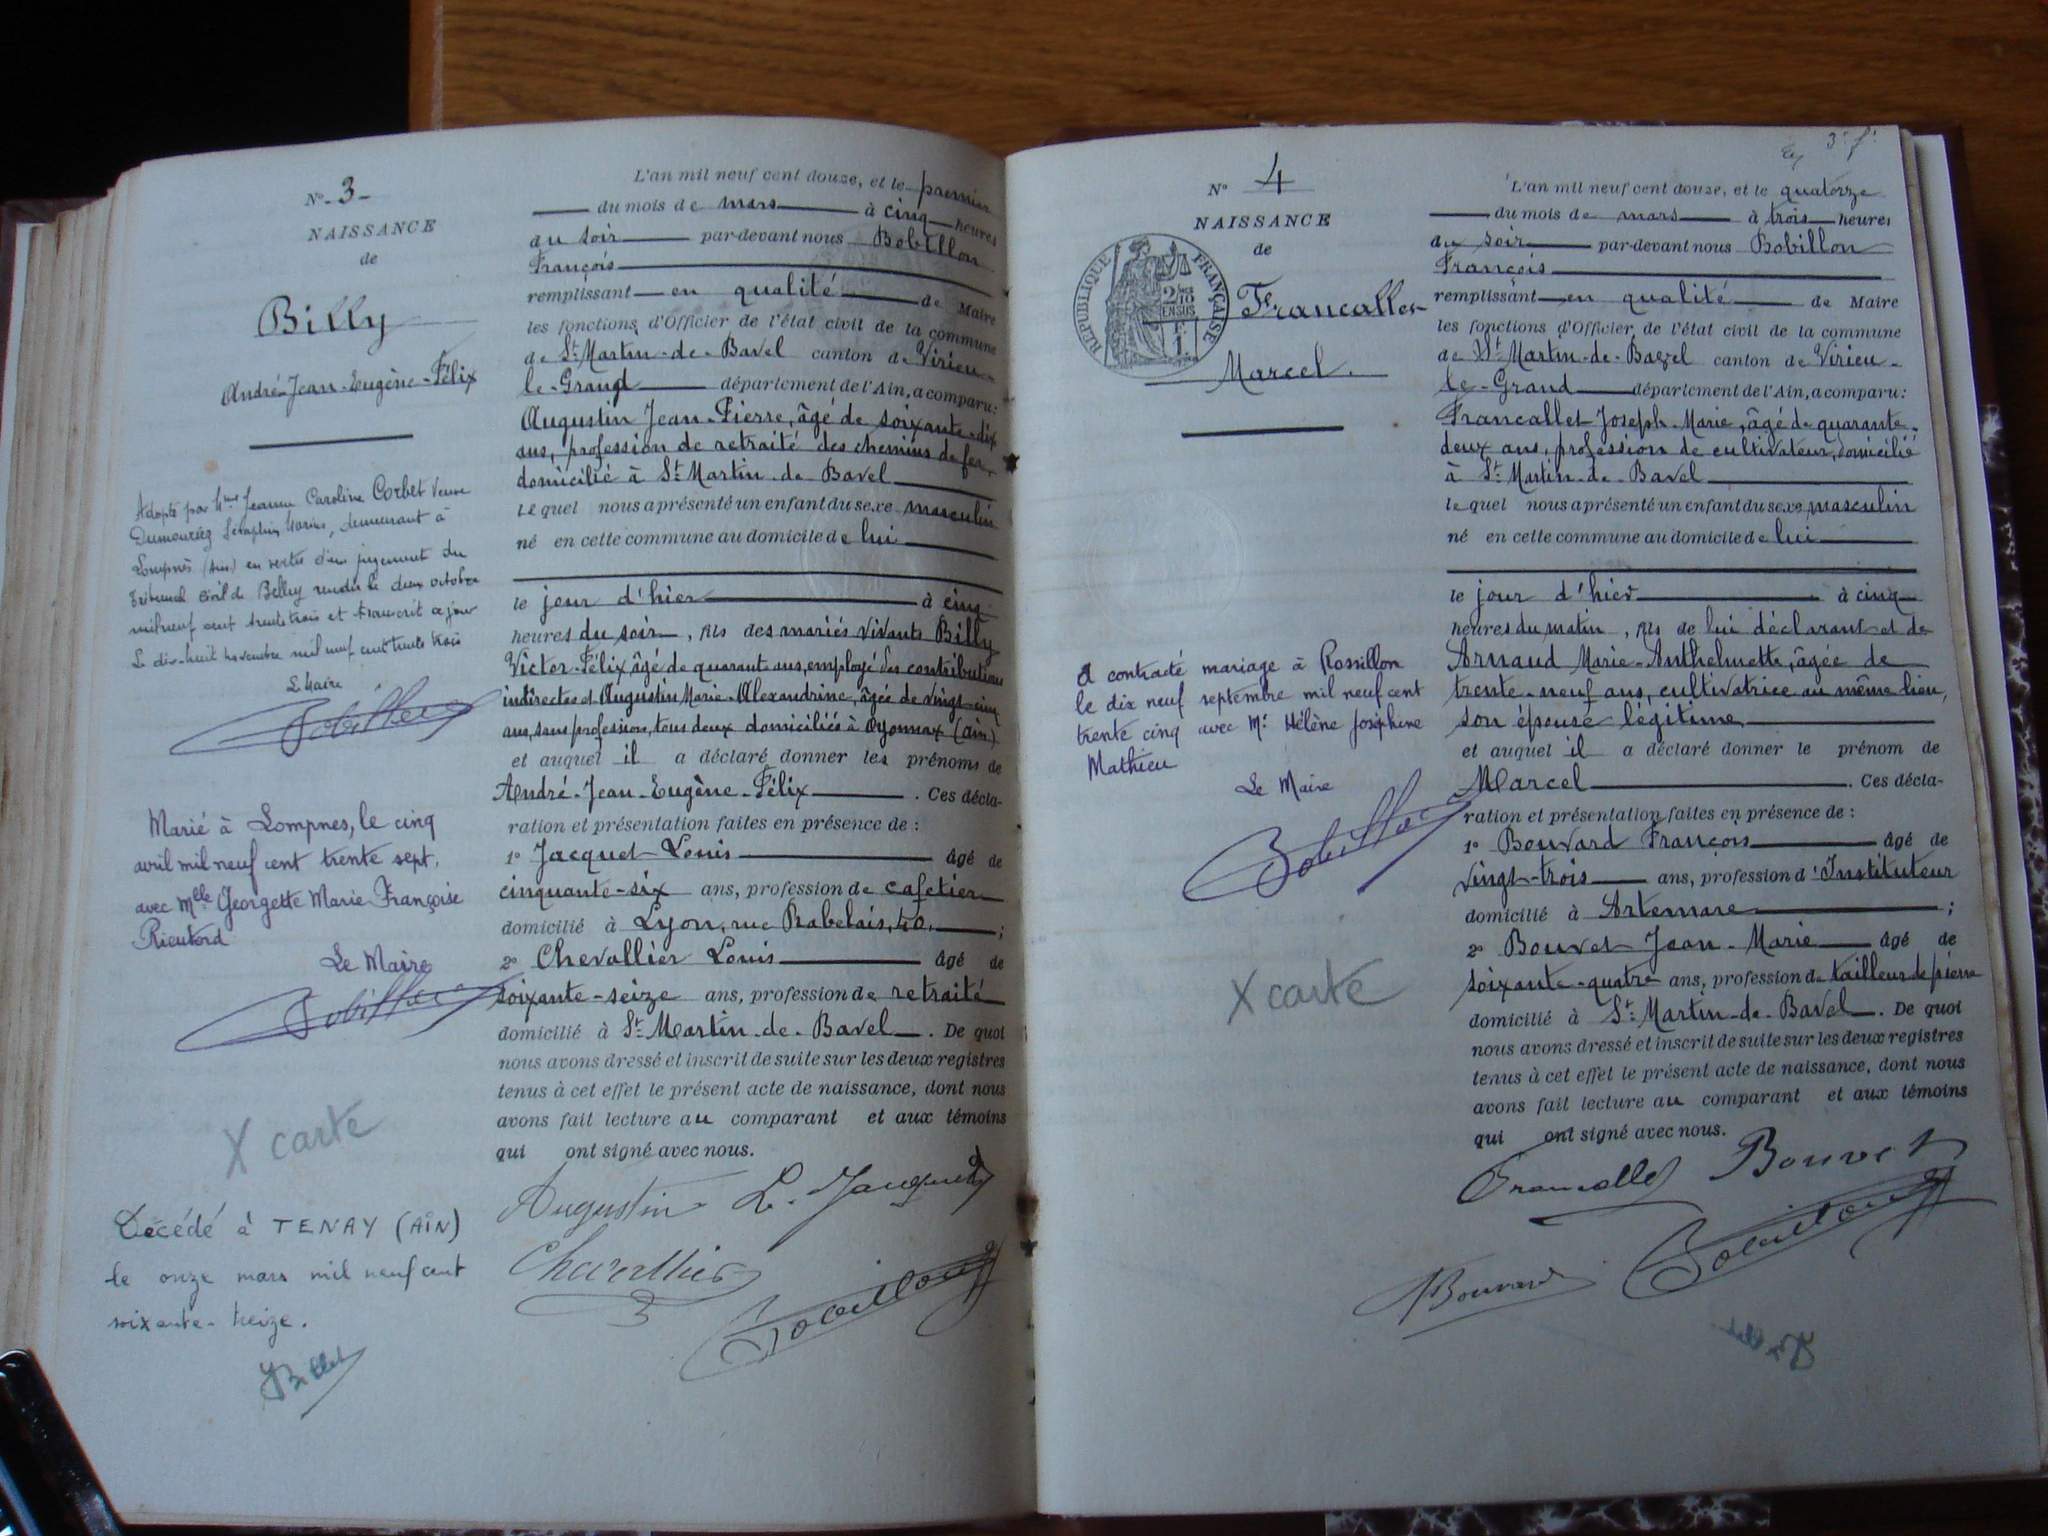 N° 3
NAISSANCE
de
Billy
André-Jean-Eugène-Félix
Adopté par Mme Jeanne Caroline Corbet Veuve
Dumouriez Séraphin Marius, demeurant à
Lompnès (Ain) en vertu d'un jugement du
Tribunal Civil de Belley rendu le deux octobre
mil neuf cent trente trois et transcrit ce jour
Le dix-huit novembre mil neuf cent trente trois
Le Maire
Bobillon
Marié à Lompnes, le cinq
avril mil neuf cent trente sept,
avec Melle Georgette Marie Françoise
Rieutord
Le Maire
Bobillon
X carte
Décédé à TENAY (AIN)
le onze mars mil neuf cent
soixante-treize.
Billet
L'an mil neuf cent douze, et le premier
du mois de mars à cinq heures
du soir par-devant nous Bobillon
François
remplissant en qualité de Maire
les fonctions d'Officier de l'état civil de la commune
de St Martin-de-Bavel canton de Virieu-
le-Grand département de l'Ain, a comparu:
Augustin Jean-Pierre, âgé de soixante-dix
ans, profession de retraité des chemins de fer,
domicilié à St Martin-de-Bavel
Lequel nous a présenté un enfant du sexe masculin
né en cette commune au domicile de lui
le jour d'hier à cinq
heures du soir, fils des mariés vivants Billy
Victor-Félix âgé de quarante ans, employé des contributions
indirectes et Augustin Marie-Alexandrine, âgée de vingt-cinq
ans, sans profession, tous deux domiciliés à Oyonnax (Ain)
et auquel il a déclaré donner les prénoms de
André-Jean-Eugène-Félix. Ces décla-
ration et présentation faites en présence de :
1° Jacquet Louis âgé de
cinquante-six ans, profession de cafetier
domicilié à Lyon, rue Rabelais, 40. ;
2° Chevallier Louis âgé de
soixante-seize ans, profession de retraité
domicilié à St Martin-de-Bavel. De quoi
nous avons dressé et inscrit de suite sur les deux registres
tenus à cet effet le présent acte de naissance, dont nous
avons fait lecture au comparant et aux témoins
qui ont signé avec nous.
Augustin L. Jacquet
Chevallier
Bobillon
3e f.
N° 4
NAISSANCE
de
RÉPUBLIQUE FRANÇAISE
Francallet
Marcel.
A contracté mariage à Rossillon
le dix neuf septembre mil neuf cent
trente cinq avec Mle Hélène Joséphine
Mathieu
Le Maire
Bobillon
X carte
L'an mil neuf cent douze, et le quatorze
du mois de mars à trois heures
du soir par-devant nous Bobillon
François
remplissant en qualité de Maire
les fonctions d'Officier de l'état civil de la commune
de St Martin-de-Bavel canton de Virieu-
le-Grand département de l'Ain, a comparu:
Francallet Joseph-Marie, âgé de quarante-
deux ans, profession de cultivateur, domicilié
à St Martin-de-Bavel
lequel nous a présenté un enfant du sexe masculin
né en cette commune au domicile de lui
le jour d'hier à cinq
heures du matin, fils de lui déclarant et de
Arnaud Marie-Anthelmette, âgée de
trente-neuf ans, cultivatrice au même lieu,
son épouse légitime
et auquel il a déclaré donner le prénom de
Marcel. Ces décla-
ration et présentation faites en présence de :
1° Bouvard François âgé de
vingt-trois ans, profession d'Instituteur
domicilié à Artemare ;
2° Bouvet Jean-Marie âgé de
soixante-quatre ans, profession de tailleur de pierre
domicilié à St Martin-de-Bavel. De quoi
nous avons dressé et inscrit de suite sur les deux registres
tenus à cet effet le présent acte de naissance, dont nous
avons fait lecture au comparant et aux témoins
qui ont signé avec nous.
Francallet Bouvet
Bouvard Bobillon